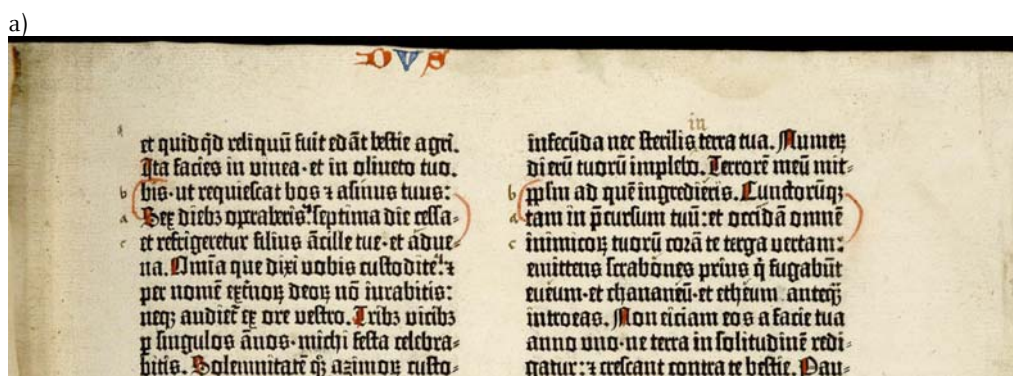 a)
DVS
et quid q̄d reliquū fuit edāt bestie agri.
Ita facies in vinea·et in oliueto tuo.
b bis·ut requiescat bos ⁊ asinus tuus:
a Sex diebꝫ oꝑaberis. septima die cessa=
c et refrigeretur filius ācille tue·et adue=
na. Omīa que dixi uobis custodite: ⁊
per nomē exťnoꝝ deoꝝ nō iurabitis:
neqꝫ audiet̄ ex ore vestro. Tribꝫ vicibꝫ
ꝑ singulos ānos·michi festa celebra=
bitis. Solemnitatē qꝫ azimoꝝ custo=
in
infecūda nec sterilis terra tua. Numeꝝ
dierū tuorū implebo. Terrorē meū mit=
b pp̄lm ad quē ingredieris. Cunctorūqꝫ
a tam in p̄cursum tuū: et occidā omnē
c inimicoꝝ tuorū corā te terga vertam:
emittens scrabones prius q̄ fugabūt
eueum·et chananeū·et etheum anteqꝫ
introeas. Non eiciam eos a facie tua
anno uno·ne terra in solitudinē redi=
gatur: ⁊ crescant contra te bestie. Pau=